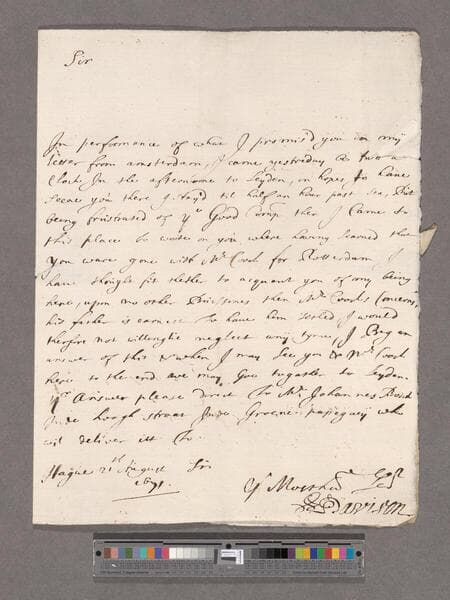 Sir
In performance of what I promis'd you in my
letter from amsterdam, I came yesterday at two a
Clock In the afternoone to Leyden, in hopes to have
seene you there I stay'd til half an hour past sea, But
being frustrated of yr Good Comp. then I Came to
this place to waite on you where having learned that
you ware gone with Mr Cook for Rotterdam, I
have thought fit to acquant you of my being
here, upon no other Buissnes then Mr Cooks Concerns,
his father is earnest to have him setled I would
therfore not willinglie neglect any tyme, I Beg an
answer of this & when I may See you & Mr Cook
here to the end we may Goe togather to Leyden.
yr Answer please direct to Mr Johannes
Inde hoogh straat Inde Groene papegaey who
wil deliver itt to
Sir
Hague 21st August
1691.
Yr Most hum
Davison